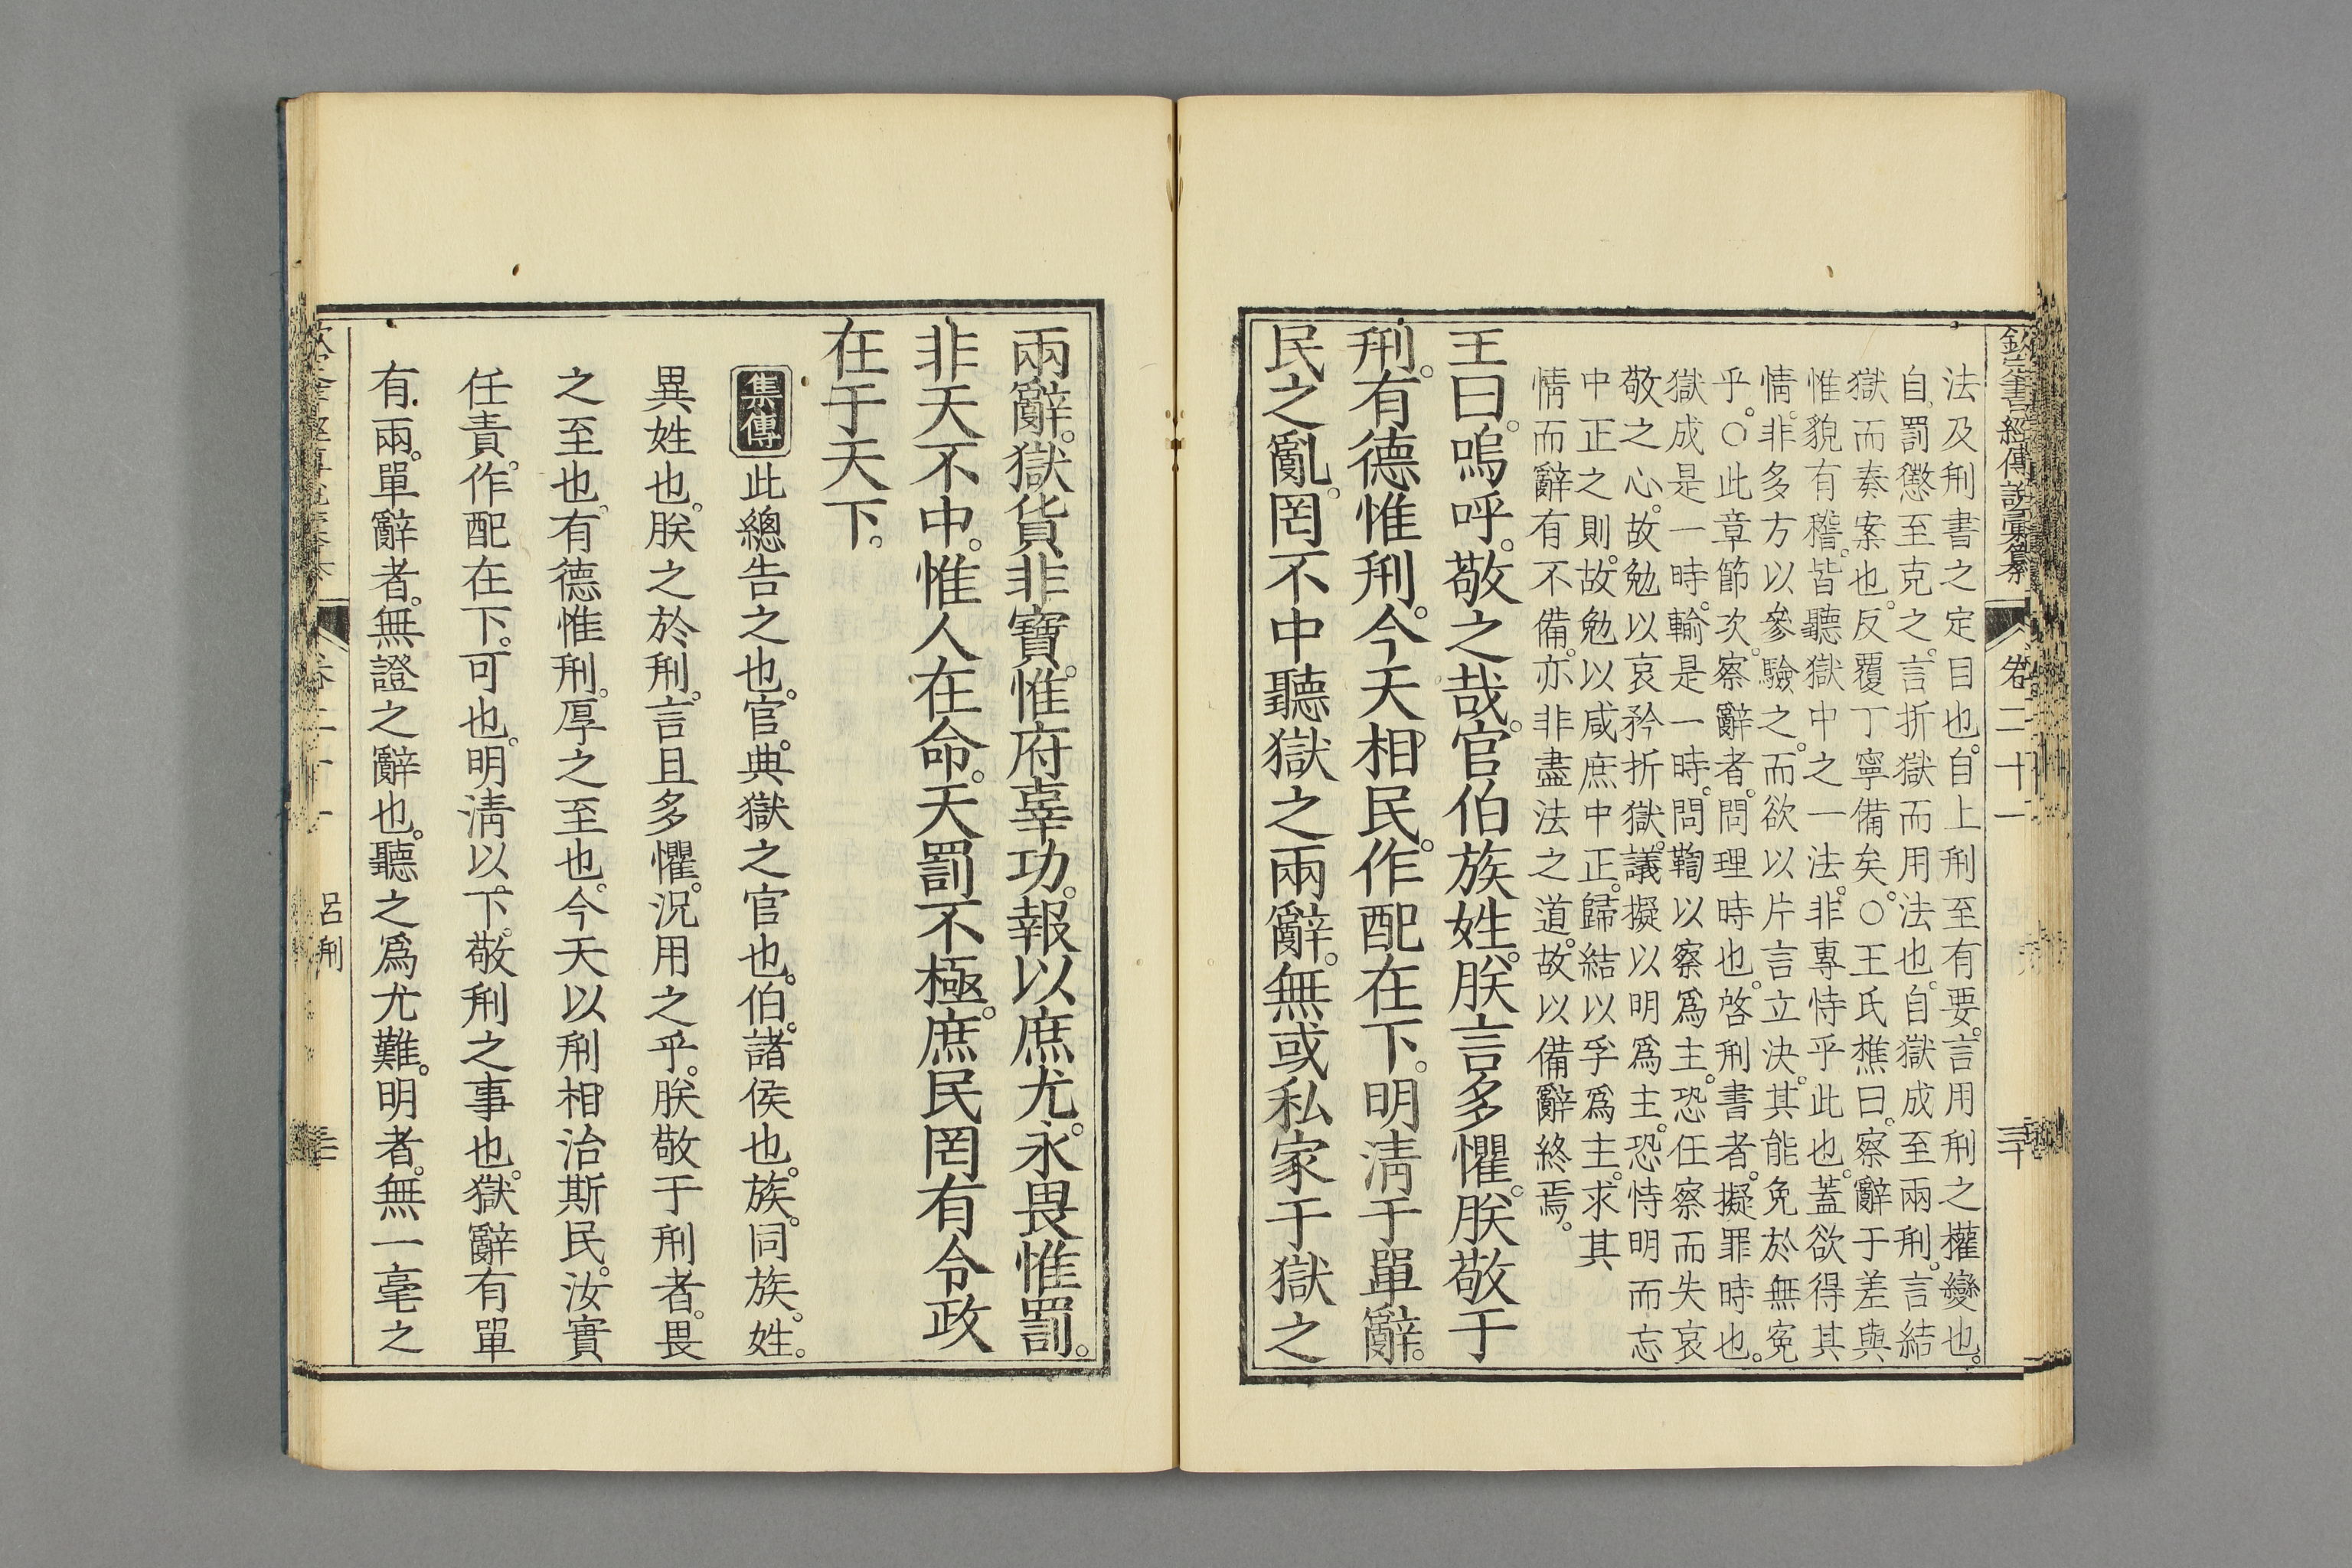 欽定書經傳說彙纂 卷二十一 三十
法及𠛬書之定目也。自上𠛬至有要。言用𠛬之權變也。
自罰懲至克之。言折獄而用法也。自獄成至兩𠛬。言結
獄而奏案也。反覆丁寧備矣。○王氏樵曰。察辭于差與
惟貌有稽。皆聽獄中之一法。非專恃乎此也。蓋欲得其
情。非多方以參驗之。而欲以片言立決。其能免於無冤
乎。○此章節次。察辭者。問理時也。啓𠛬書者。擬罪時也。
獄成是一時。輸是一時。問鞫以察爲主。恐任察而失哀
敬之心。故勉以哀矜折獄。議擬以明爲主。恐恃明而忘
中正之則。故勉以咸庶中正。歸結以孚爲主。求其
情而辭有不備。亦非盡法之道。故以備辭終焉。
王曰。嗚呼。敬之哉。官伯族姓。朕言多懼。朕敬于
𠛬。有德惟𠛬。今天相民。作配在下。明淸于單辭。
民之亂。罔不中聽獄之兩辭。無或私家于獄之
兩辭。獄貨非寶。惟府辜功。報以庶尤。永畏惟罰。
非天不中。惟人在命。天罰不極。庶民罔有令政
在于天下。
集傳 此總告之也。官。典獄之官也。伯。諸侯也。族。同族。姓。
異姓也。朕之於𠛬。言且多懼。況用之乎。朕敬于𠛬者。畏
之至也。有德惟𠛬。厚之至也。今天以𠛬相治斯民。汝實
任責。作配在下。可也。明淸以下。敬𠛬之事也。獄辭有單
有兩。單辭者。無證之辭也。聽之爲尤難。明者。無一毫之
卷二十一 呂𠛬